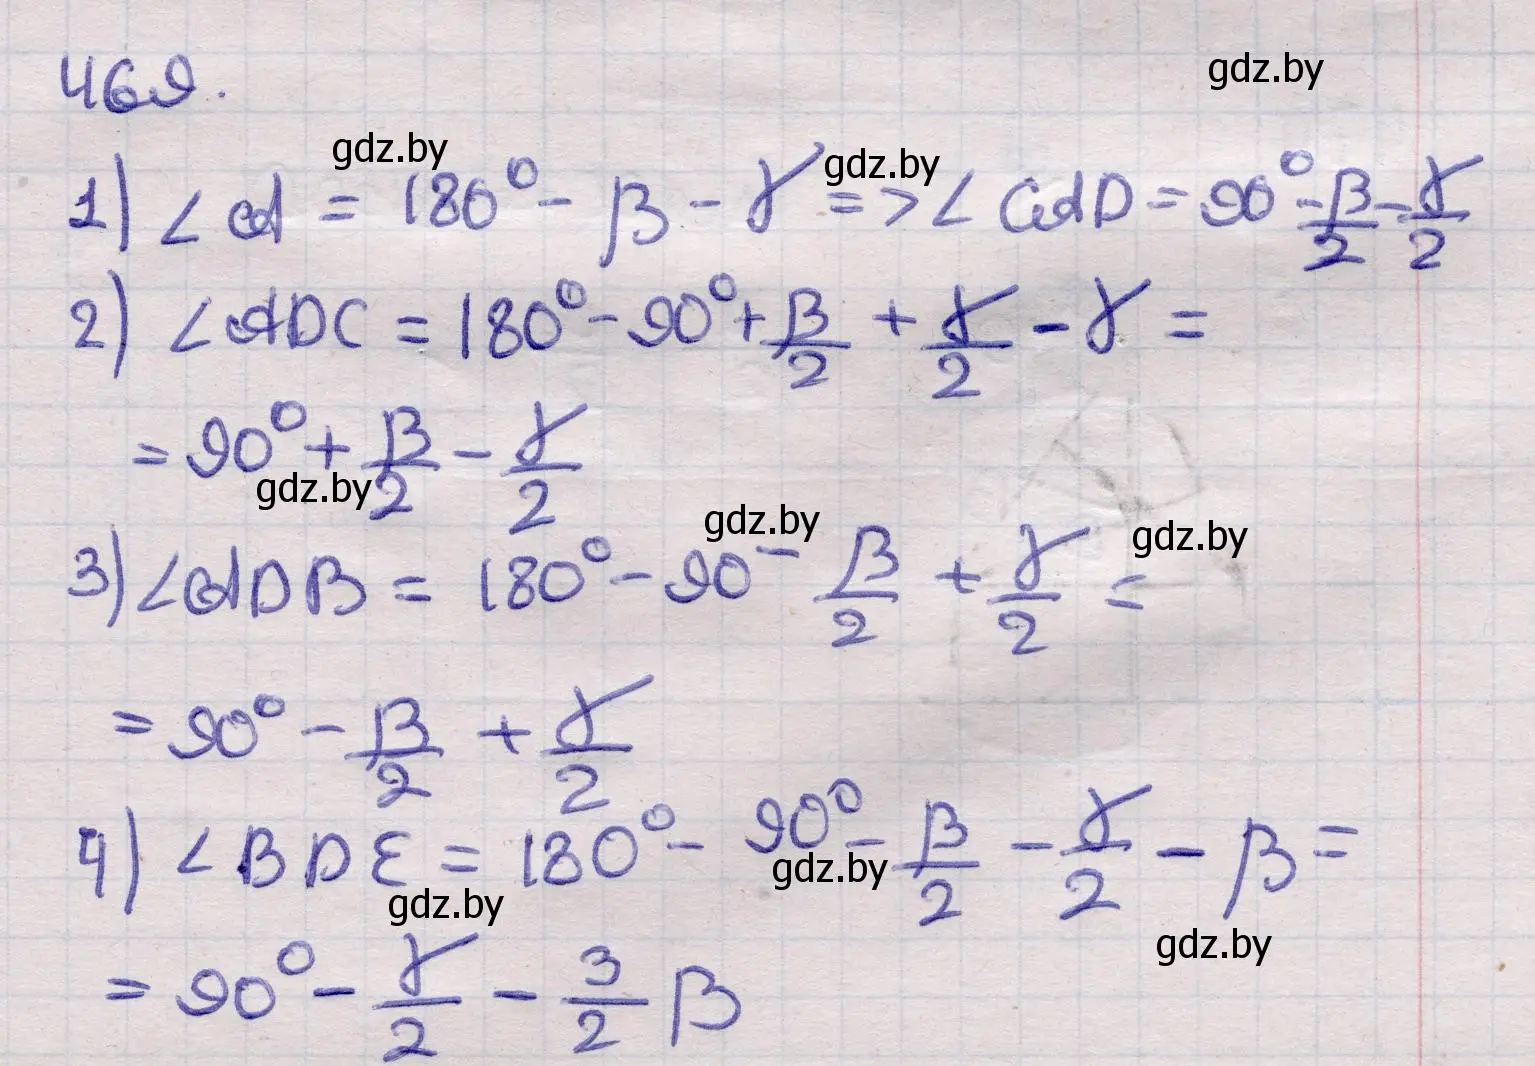 469.
gdz.by
gdz.by
gdz.by
1) ∠A = 180° - β - γ => ∠CAD = 90° - β/2 - γ/2
2) ∠ADC = 180° - 90° + β/2 + γ/2 - γ =
= 90° + β/2 - γ/2
gdz.by
gdz.by
gdz.by
3) ∠ADB = 180° - 90 - β/2 + γ/2 =
= 90° - β/2 + γ/2
4) ∠BDE = 180° - 90° - β/2 - γ/2 - β =
gdz.by
gdz.by
gdz.by
= 90° - γ/2 - 3/2 β